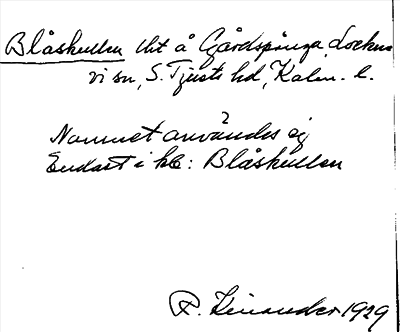 Blåskullen tht å Gårdspånga, Locknevi sn, S. Tjusts hd, Kalm. l.
Namnet användes ej
Endast i kb: Blåskullen
R. Kinander 1929